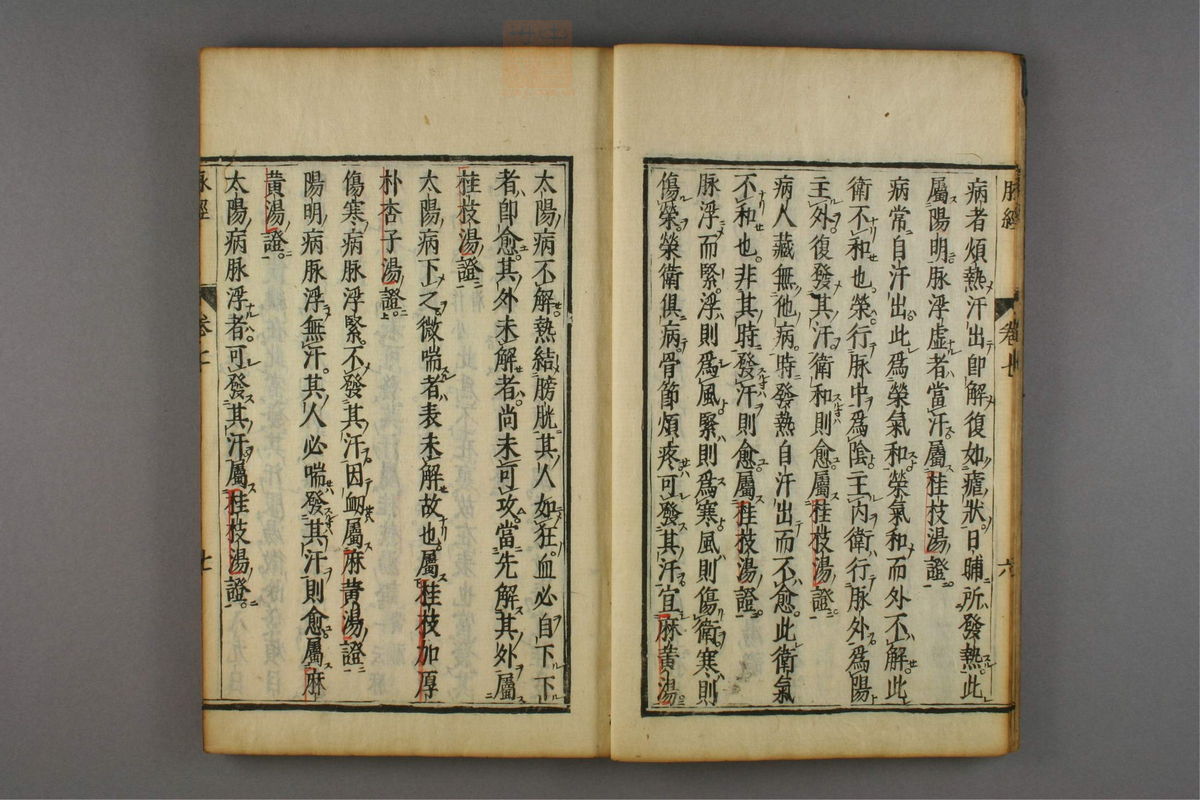 脉經 卷七 六
病者煩熱汗出即解復如瘧狀日晡所發熱此
屬陽明脉浮虚者當汗屬桂枝湯證
病常自汗出此爲榮氣和榮氣和而外不解此
衛不和也榮行脉中爲陰主內衛行脉外爲陽
主外復發其汗衛和則愈屬桂枝湯證
病人藏無他病時發熱自汗出而不愈此衛氣
不和也非其時發汗則愈屬桂枝湯證
脉浮而緊浮則爲風緊則爲寒風則傷衛寒則
傷榮榮衛俱病骨節煩疼可發其汗宜麻黄湯
太陽病不解熱結膀胱其人如狂血必自下下
者即愈其外未解者尚未可攻當先解其外屬
桂枝湯證
太陽病下之微喘者表未解故也屬桂枝加厚
朴杏子湯證
傷寒病脉浮緊不發其汗因衂屬麻黄湯證
陽明病脉浮無汗其人必喘發其汗則愈屬麻
黄湯證
太陽病脉浮者可發其汗屬桂枝湯證
脉經 卷七 七